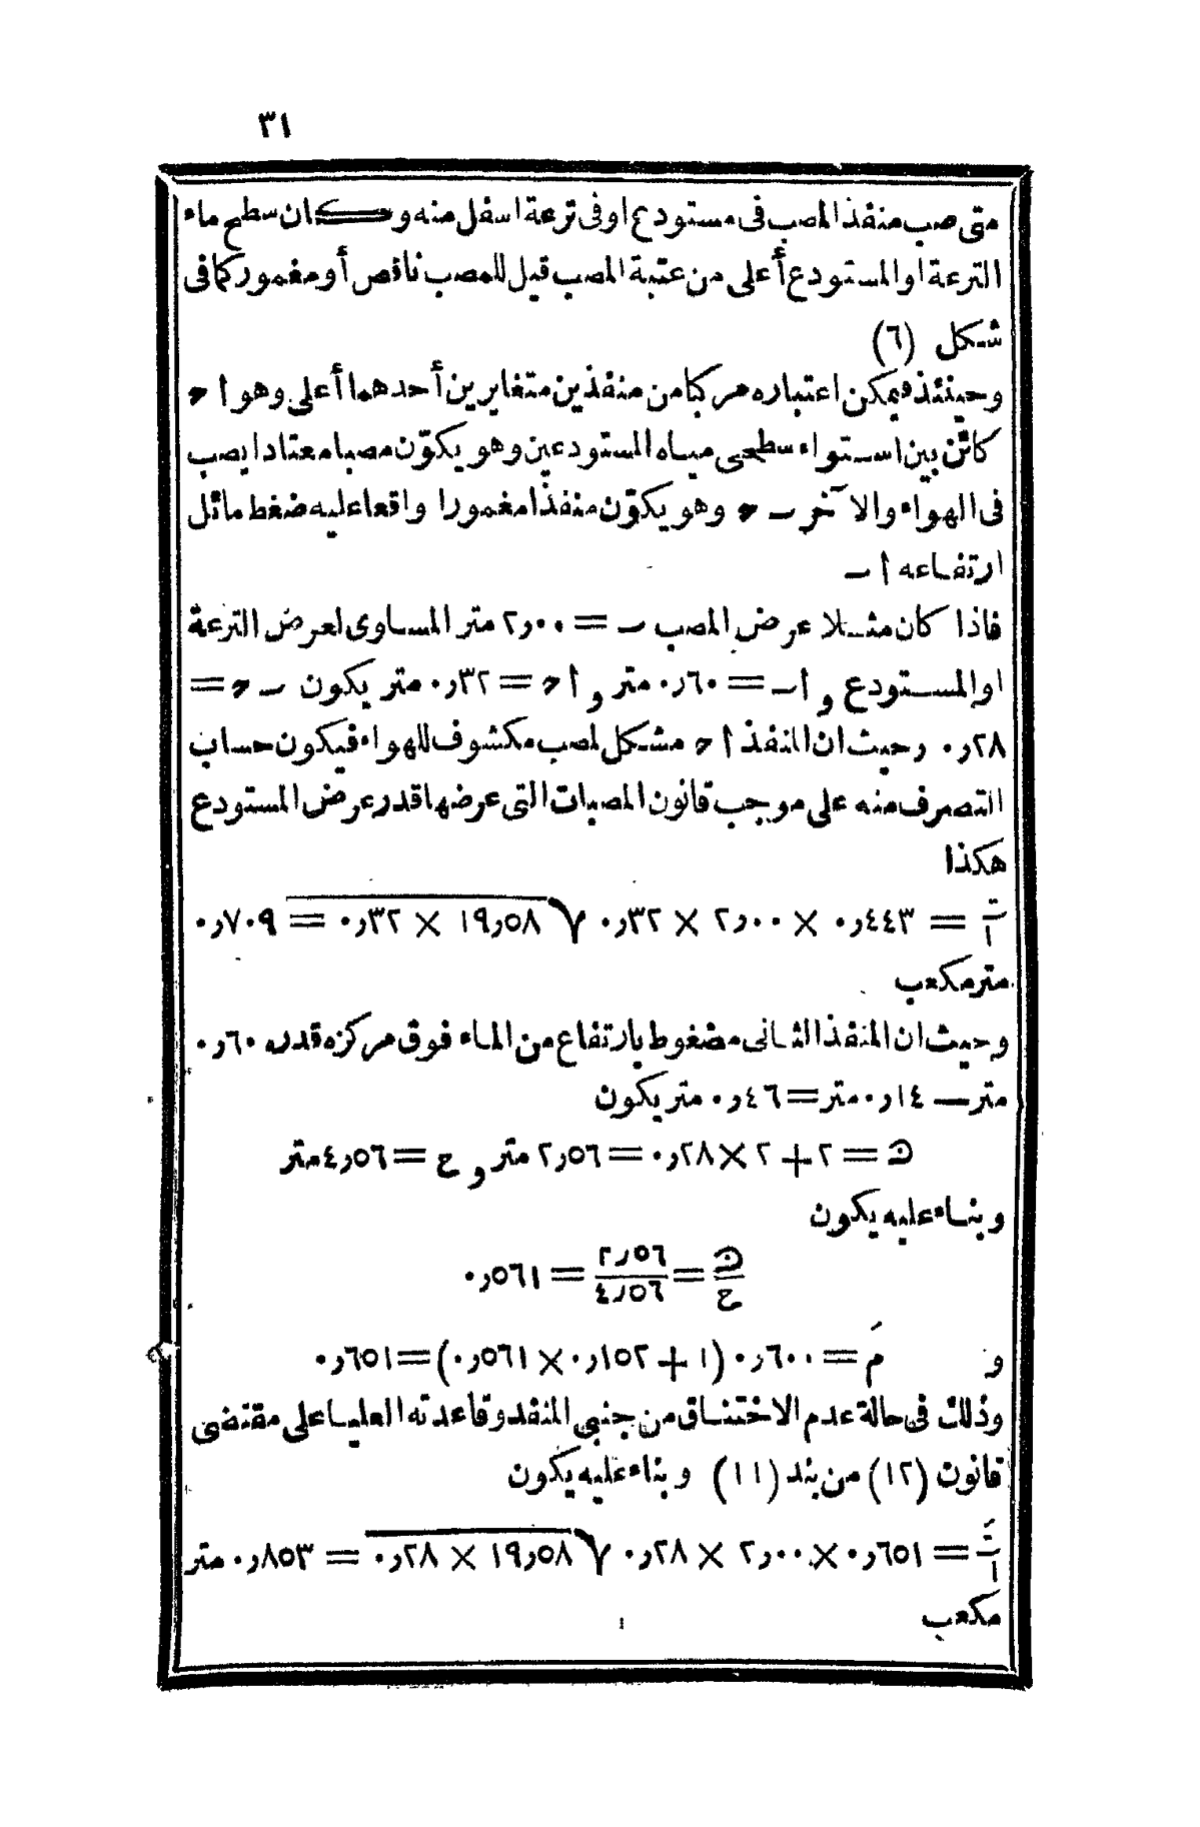 ٣١
متى صب منفذ المصب فى مستودع او فى ترعة اسفل منه وكان سطح ماء
الترعة او المستودع أعلى من عتبة المصب قيل للمصب ناقص أو مغمور كما فى
شكل (٦)
وحينئذ فيمكن اعتباره مركبا من منفذين متغايرين أحدهما أعلى وهو ا ح
كائن بين استواء سطحى مياه المستودعين وهو يكوّن مصبا معتادا يصب
فى الهواء والآخر ب ح وهو يكوّن منفذا مغمورا واقعا عليه ضغط مائل
ارتفاعه ا ب
فاذا كان مثلا عرض المصب ب = ٢ر٠٠ متر المساوى لعرض الترعة
او المستودع و ا ب = ٠ر٦٠ متر و ا ح = ٠ر٣٢ متر يكون ب ح =
٠ر٢٨ وحيث ان المنفذ ا ح مشكل لمصب مكشوف للهواء فيكون حساب
التصرف منه على موجب قانون المصبات التى عرضها قدر عرض المستودع
هكذا
ت/ا = ٠ر٤٤٣ × ٢ر٠٠ × ٠ر٣٢ √١٩ر٥٨ × ٠ر٣٢ = ٠ر٧٠٩
متر مكعب
وحيث ان المنفذ الثانى مضغوط بارتفاع من الماء فوق مركزه قدره ٠ر٦٠
متر — ٠ر١٤ متر = ٠ر٤٦ متر يكون
ں = ٢ + ٢ × ٠ر٢٨ = ٢ر٥٦ متر و ح = ٤ر٥٦ متر
وبناء عليه يكون
ں/ح = ٢ر٥٦/٤ر٥٦ = ٠ر٥٦١
و مَ = ٠ر٦٠٠ (١ + ٠ر١٥٢ × ٠ر٥٦١) = ٠ر٦٥١
وذلك فى حالة عدم الاختناق من جنبى المنفد وقاعدته العليا على مقتضى
قانون (١٢) من بند (١١) وبناء عليه يكون
تَ/ا = ٠ر٦٥١ × ٢ر٠٠ × ٠ر٢٨ √١٩ر٥٨ × ٠ر٢٨ = ٠ر٨٥٣ متر
مكعب